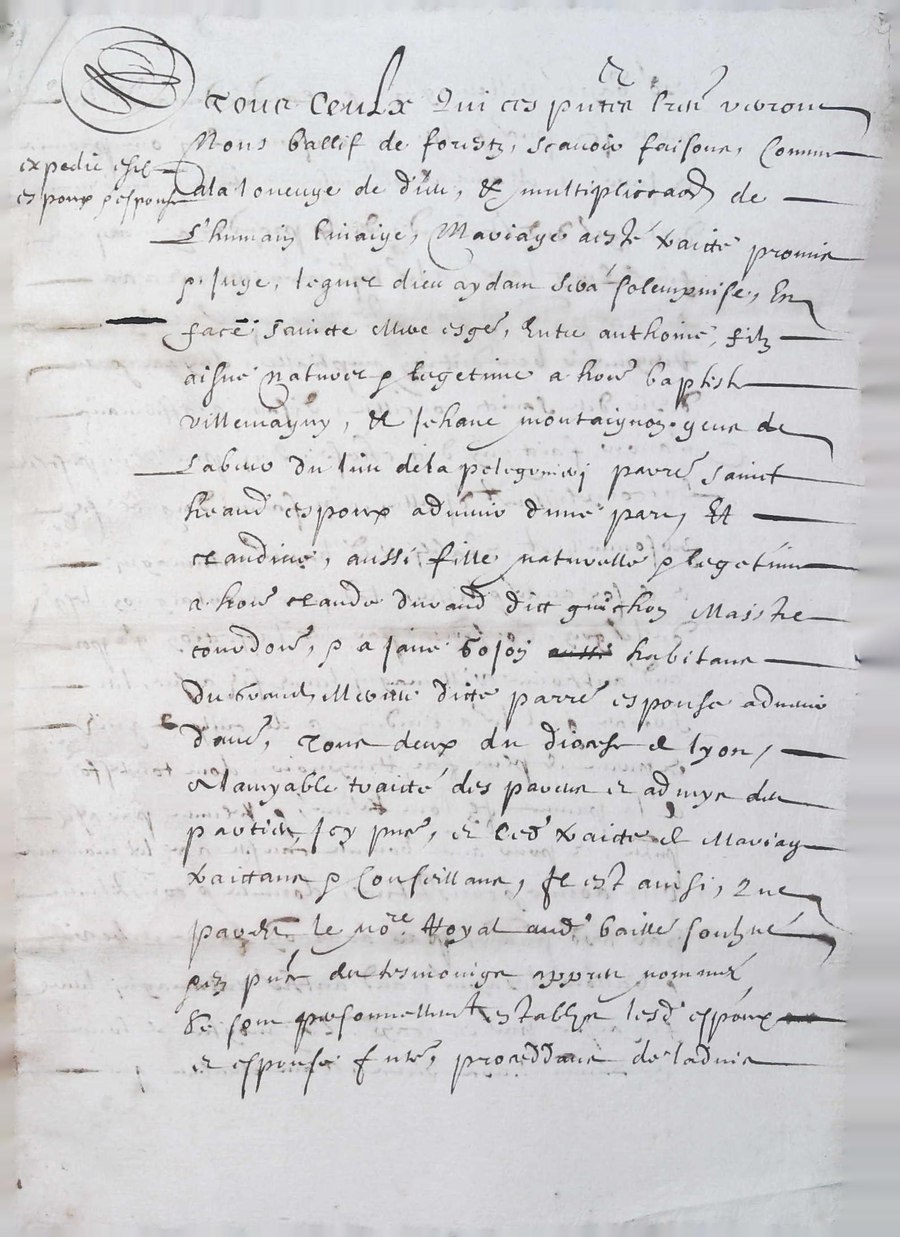 A Tous Ceulx Qui ces p̃ntes l̃res verront
Nous ballif de forestz, scavoir faisons, Comme
expedie esd
espoux & espouse
a la louenge de dieu, & multiplicaõn de
L'humain linaige, Mariage a esté traicté promis
& juge, lequel dieu aydant sera solempnise, En
face saincte mere esgle, Entre anthoine, filz
aisne naturel & legetime a hon̄e baptiste
villemagny, & Jehane montaignon gens de
Labeur du lieu de la pelegoniere parr̃e sainct
heand espoux advenir d'une part, Et
claudine, aussi fille naturelle & legetime
a hon̄e claude durand dict guichon Maistre
cordon̄e, & a Jane habitans
du dicte parr̃e espouse advenir
d'autre, Tous deux du diocese de lyon,
& l'amyable traicté des parens et admys des
parties Icy p̃ns, et led traicté de Mariage
traictans & Conseillans, Il est ainsi, Que
pardevant le no.re Royal aud baille soubzne
& en p̃nce des tesmoings appres nommez
Se sont personnellement establys lesd espoux
et espouse futurs, proceddans de l'advis